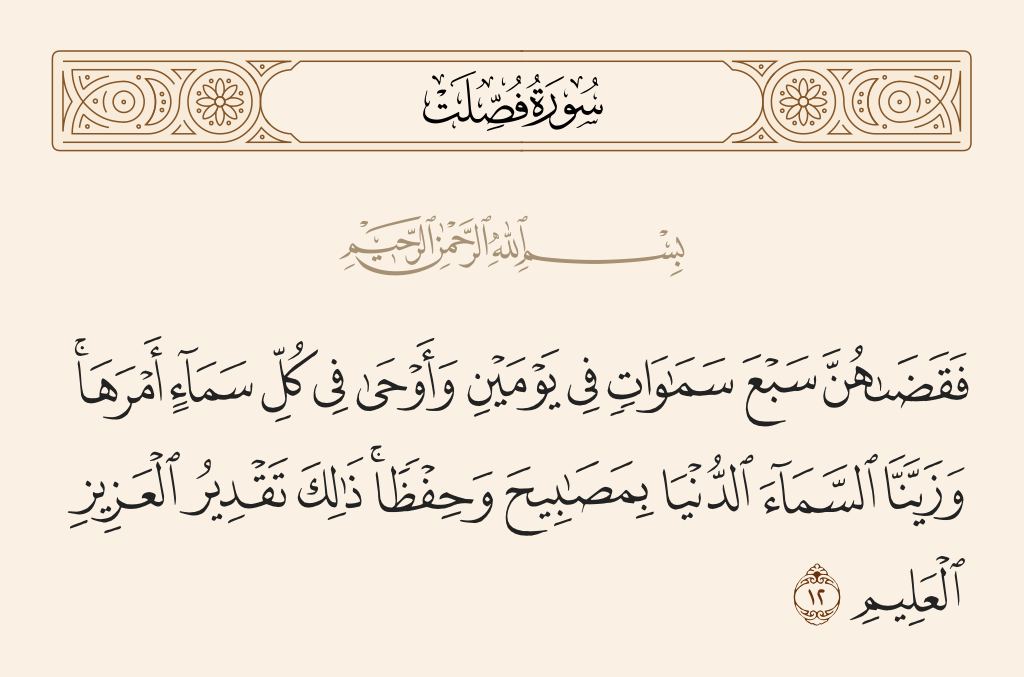 سُورَةُ فُصِّلَتْ
بِسْمِ ٱللَّهِ ٱلرَّحْمَٰنِ ٱلرَّحِيمِ
فَقَضَىٰهُنَّ سَبْعَ سَمَٰوَاتٍ فِى يَوْمَيْنِ وَأَوْحَىٰ فِى كُلِّ سَمَآءٍ أَمْرَهَا ۚ
وَزَيَّنَّا ٱلسَّمَآءَ ٱلدُّنْيَا بِمَصَٰبِيحَ وَحِفْظًا ۚ ذَٰلِكَ تَقْدِيرُ ٱلْعَزِيزِ
ٱلْعَلِيمِ ١٢